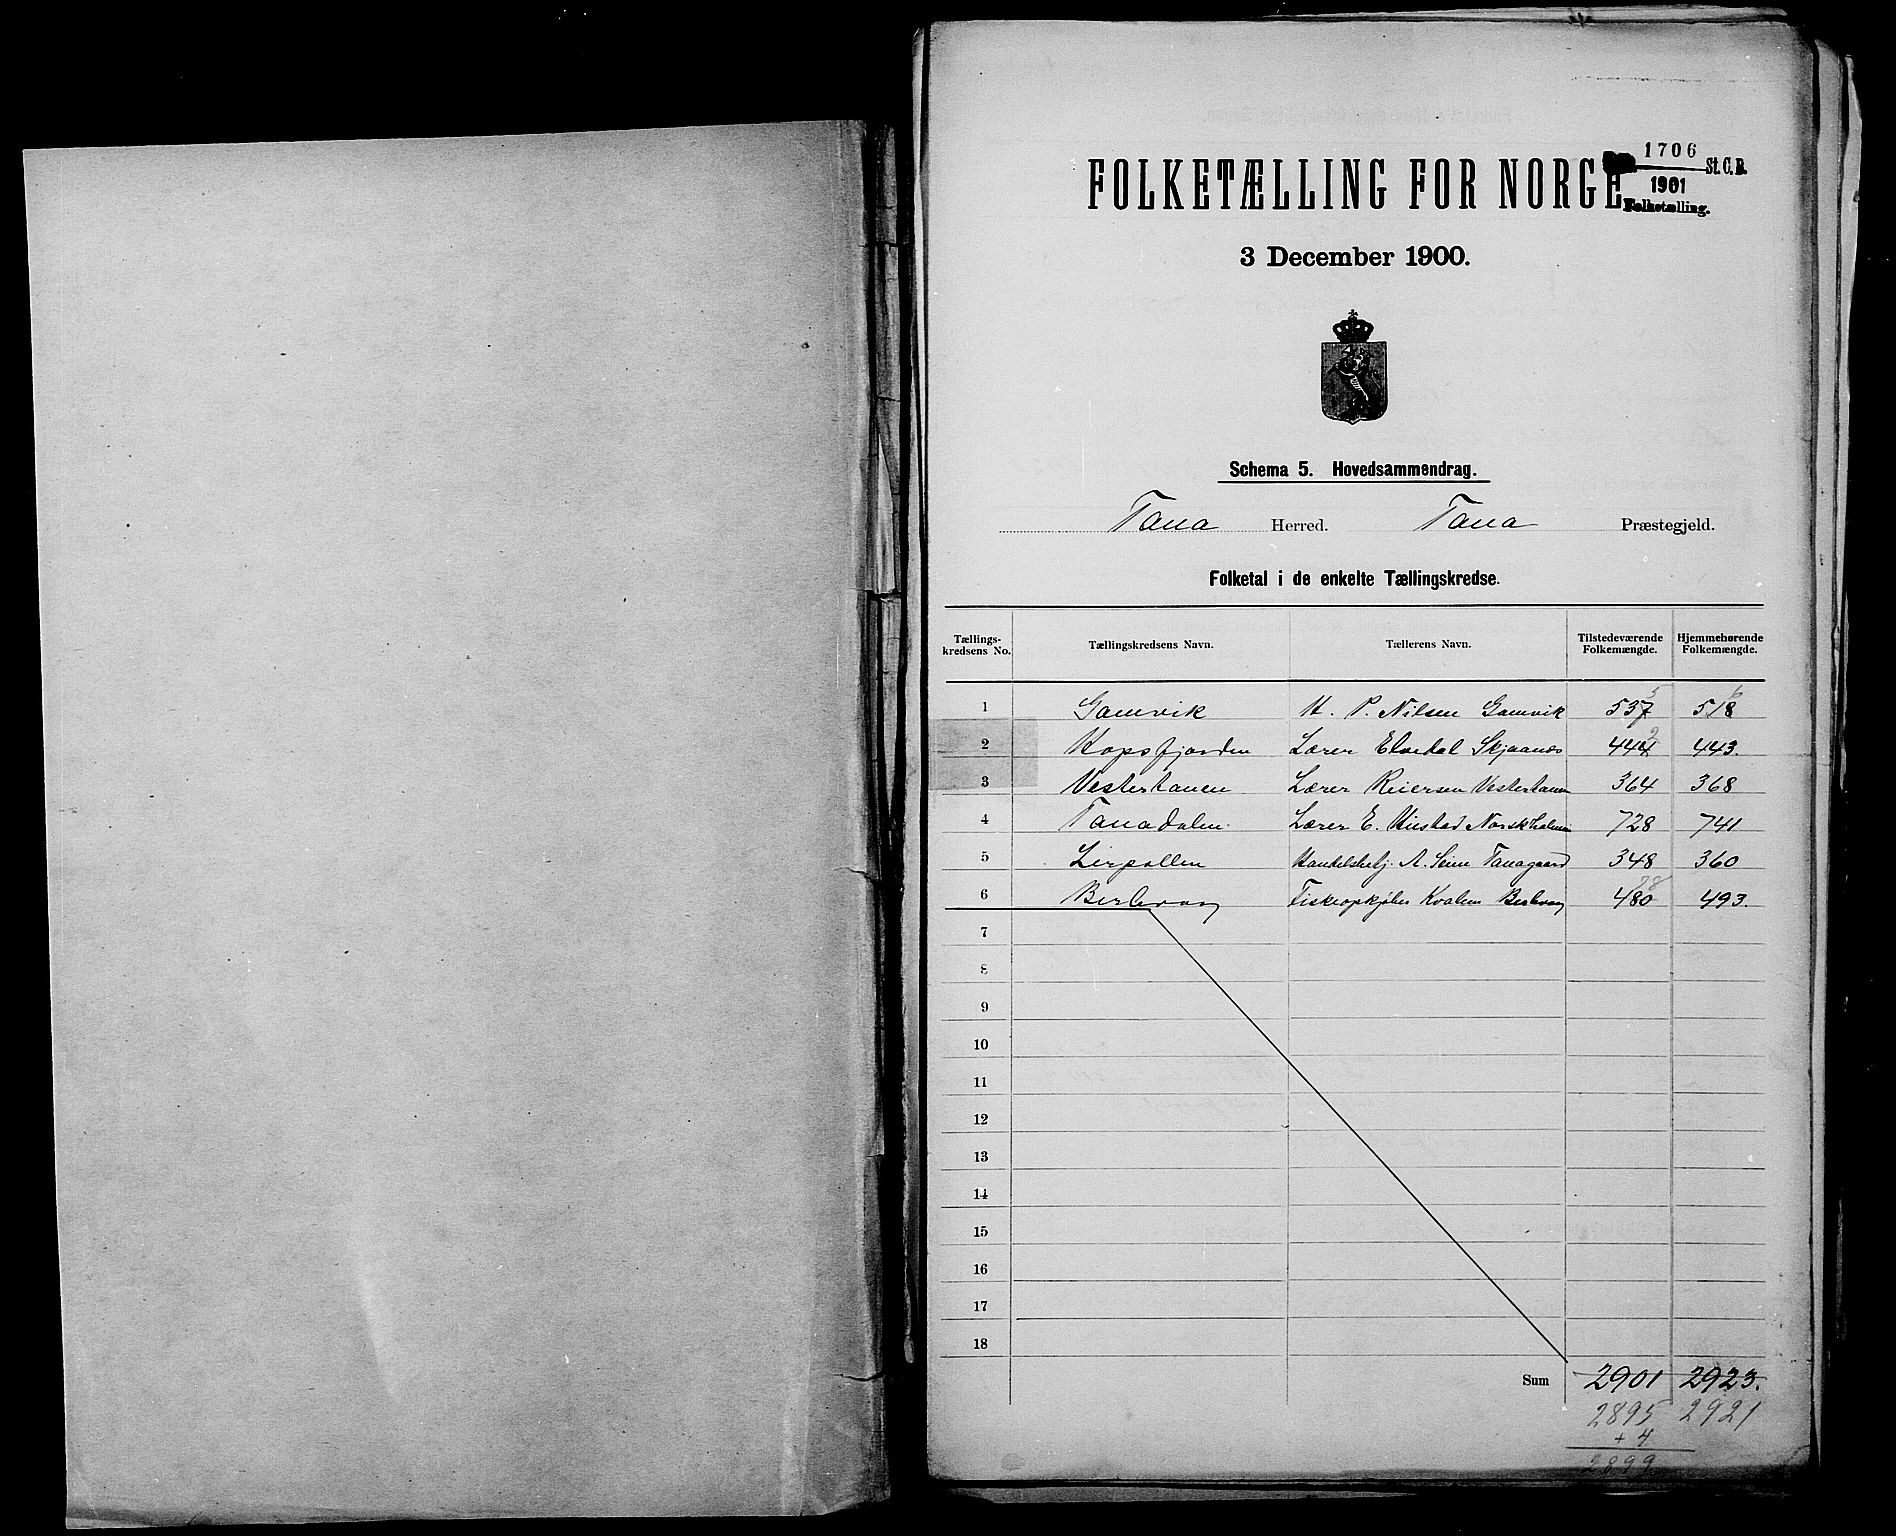 1706
St. C. B.
1901
Folketælling.
FOLKETÆLLING FOR NORGE
3 December 1900.
Schema 5. Hovedsammendrag.
Tana Herred. Tana Præstegjeld.
Folketal i de enkelte Tællingskredse.
Tællings-kredsens No. Tællingskredsens Navn. Tællerens Navn. Tilstedeværende Folkemængde. Hjemmehørende Folkemængde.
1 Gamvik H. P. Nilsen Gamvik 537 5 518 6
2 Hopsfjorden Lærer Elvedal Skjaanes 444 2 443.
3 Vestertanen Lærer Reiersen Vestertanen 364 368
4 Tanadalen Lærer E. Norskholmen 728 741
5 Lirpollen Handelsbetj. A. Seim Tanagaard 348 360
6 Berlevag Fiskeopkjøber Kvalem Berlevag 480 78 493.
7
8
9
10
11
12
13
14
15
16
17
18
Sum 2901 2923.
2895 2921
+ 4
2899